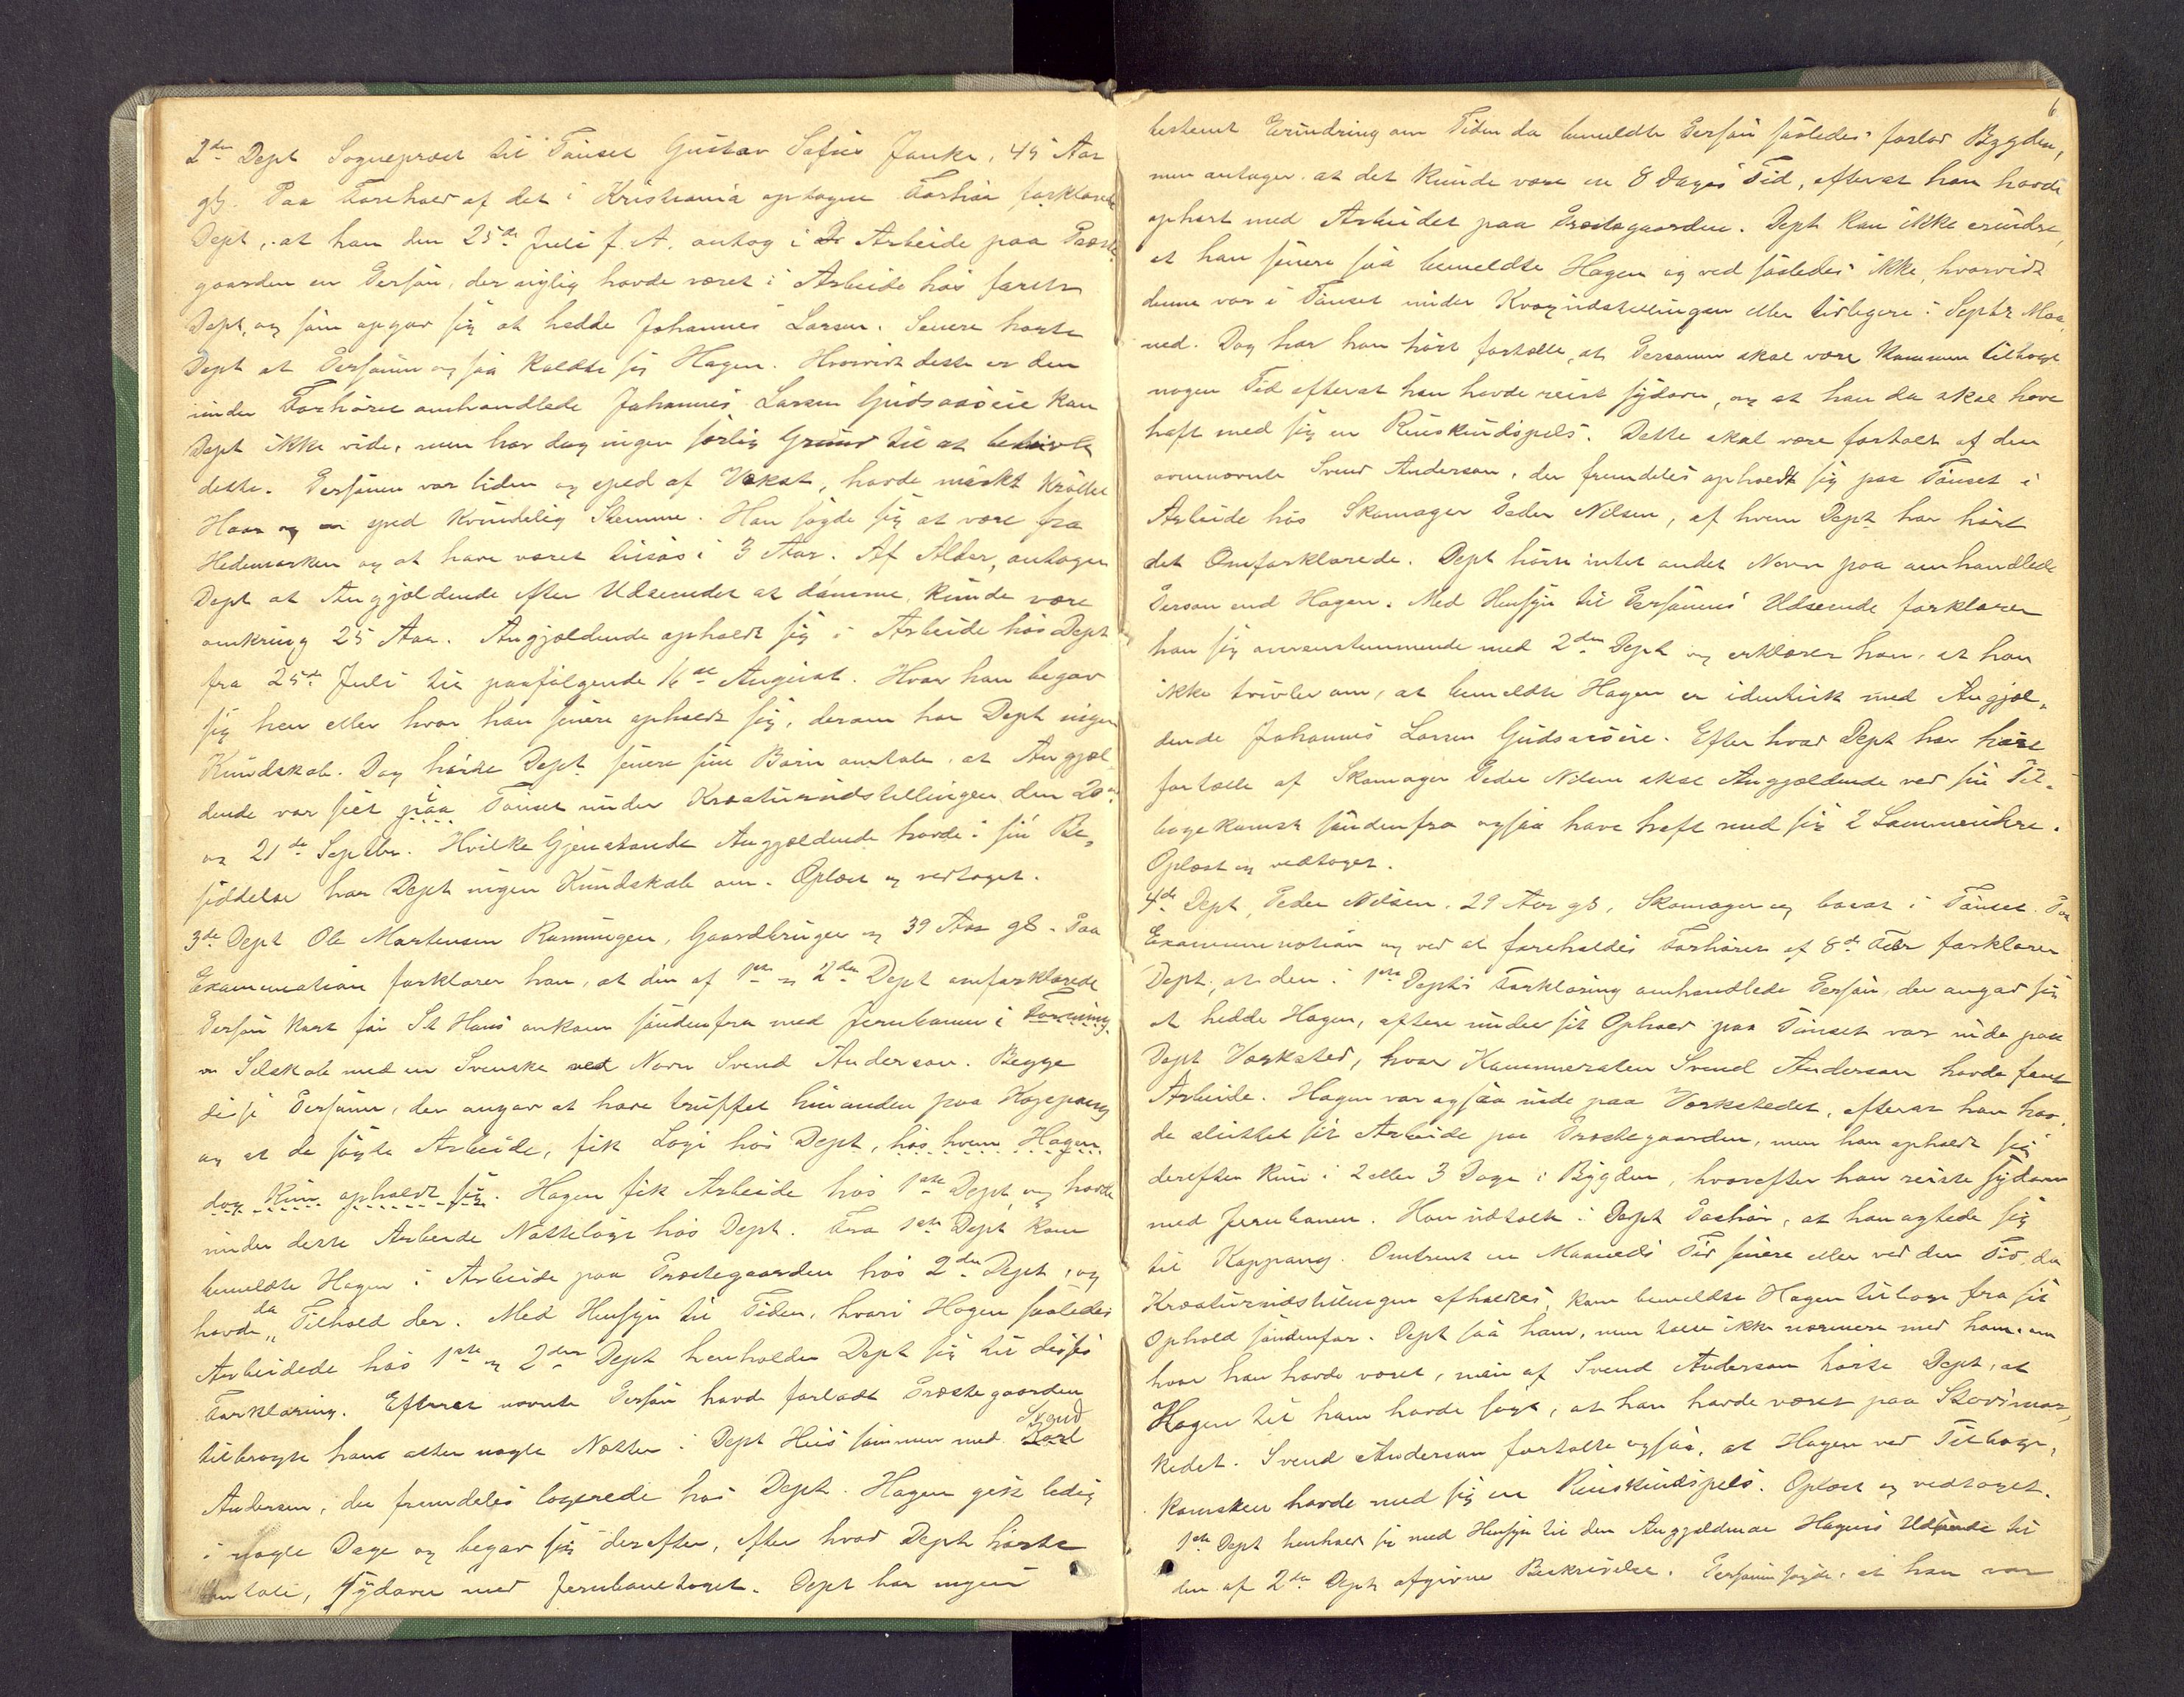 2den Dept Sogneprest til Tönset Gustav Sofus Janke, 45 Aar
gl. Paa Forehold af det i Kristiania optagne Forhör forklarede
Dept, at han den 25de Juli f. A. antog i Arbeide paa Præste-
gaarden en Person, der nylig havde været i Arbeide hos förste
Dept. og som opgav sig at hedde Johannes Larsen. Senere hörte
Dept at Personen ogsaa kaldte sig Hagen. Hvorvidt dette er den
under Forhöret omhandlede Johannes Larsen Gudsaaseie kan
Dept ikke vide, men har dog ingen særlig Grund til at betvivle
dette. Personen var liden og sped af Vækst, havde mörkt kröllet
Haar og en sped kvindelig Stemme. Han sagde sig at være fra
Hedemarken og at have været tilsös i 3 Aar. Af Alder, antager
Dept at Angjældende efter Udseendet at dömme, kunde være
omkring 25 Aar. Angjældende opholdt sig i Arbeide hos Dept
fra 25de Juli til paafölgende 16de August. Hvor han begav
sig hen eller hvor han senere opholdt sig, derom har Dept ingen
Kundskab. Dog hörte Dept senere sine Börn omtale, at Angjæl-
dende var seet paa Tönset under Kreaturudstillingen den 20de
og 21de Septbr. Hvilke Gjenstande Angjældende havde i sin Be-
siddelse har Dept ingen Kundskab om. Oplæst og vedtaget.
3de Dept Ole Martensen Ramningen, Gaardbruger og 39 Aar gl. Paa
Examination forklarer han, at den af 1ste og 2den Dept omforklarede
Person kort för St Hans ankom söndenfra med Jernbanen i Forening
og Selskab med en Svenske ved Navn Svend Anderson. Begge
disse Personer, der angav at have truffet hinanden paa Koppang
og at de sögte Arbeide, fik Logi hos Dept, hos hvem Hagen
dog kun opholdt sig. Hagen fik Arbeide hos 1ste Dept, og havde
under dette Arbeide Natteloge hos Dept. Fra 1ste Dept kom
bemeldte Hagen i Arbeide paa Præstegaarden hos 2den Dept, og
havde da Tilhold der. Med Hensyn til Tiden, hvori Hagen saaledes
Arbeidede hos 1ste og 2den Dept henholder Dept sig til disses
Forklaring. Efterat nævnte Person havde forladt Præstegaarden
tilbragte han atter nogle Nætter i Dept Hus sammen med Svend
Andersen, der fremdeles logerede hos Dept. Hagen gik ledig
i nogle Dage og begav sig derefter, efter hvad Dept hörte
omtale, sydover med Jernbanetoget. Dept har ingen
6
bestemt Erindring om Tiden da bemeldte Person saaledes forlod Bygden,
men antager at det kunde være en 8 Dages Tid, efterat han havde
ophört med Arbeidet paa Præstegaarden. Dept kan ikke erindre,
at han senere saa bemeldte Hagen og ved saaledes ikke, hvorvidt
denne var i Tönset under Kvægudstillingen eller tidligere i Septbr Maa-
ned. Dog har han hört fortælle, at Personen skal være kommen tilbage
nogen Tid efterat han havde reist sydover, og at han da skal have
haft med sig en Renskindspels. Dette skal være fortalt af den
ovennævnte Svend Anderson, der fremdeles opholdt sig paa Tönset i
Arbeide hos Skomager Peder Nilsen, af hvem Dept har hört
det Omforklarede. Dept hörte intet andet Navn paa omhandlede
Person end Hagen. Med Hensyn til Personens Udseende forklarer
han sig overensstemmende med 2den Dept og erklærer han, at han
ikke tvivler om, at bemeldte Hagen er identisk med Angjæl-
dende Johannes Larsen Gudsaaseie. Efter hvad Dept har hört
fortælle af Skomager Peder Nilsen skal Angjældende ved sin Til-
bagekomst söndenfra ogsaa have haft med sig 2 Lommeuhre.
Oplæst og vedtaget.
4de Dept, Peder Nilsen, 29 Aar gl, Skomager og bosat i Tönset. Paa
Examination og ved at foreholdes Forhöret af 8de Febr forklarer
Dept, at den i 1ste Depts Forklaring omhandlede Person, der angav sig
at hedde Hagen, oftere under sit Ophold paa Tönset var inde paa
Dept Værksted, hvor Kammeraten Svend Anderson havde faaet
Arbeide. Hagen var ogsaa inde paa Værkstedet, efterat han hav-
de sluttet sit Arbeide paa Præstegaarden, men han opholdt sig
derefter kun i 2 eller 3 Dage i Bygden, hvorefter han reiste sydover
med Jernbanen. Han udtalte i Dept Paahör, at han agtede sig
til Koppang. Omtrent en Maaneds Tid senere eller ved den Tid, da
Kreaturudstillingen afholdtes, kom bemeldte Hagen tilbage fra sit
Ophold söndenfor. Dept saa ham, men talte ikke nærmere med ham om
hvor han havde været, men af Svend Anderson hörte Dept, at
Hagen til ham havde sagt, at han havde været paa Storimar-
kedet. Svend Anderson fortalte ogsaa, at Hagen ved Tilbage-
komsten havde med sig en Renskindspels. Oplæst og vedtaget.
1ste Dept henholdt sig med Hensyn til den Angjældende Hagens Udseende til
den af 2den Dept afgivne Beskrivelse. Personen sagde, at han var